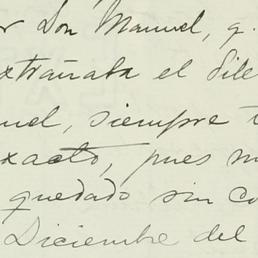 r Don Manuel, q.
extrañaba el sile
uel, siempre t
xacto, pues m
quedado sin co
Diciembre del